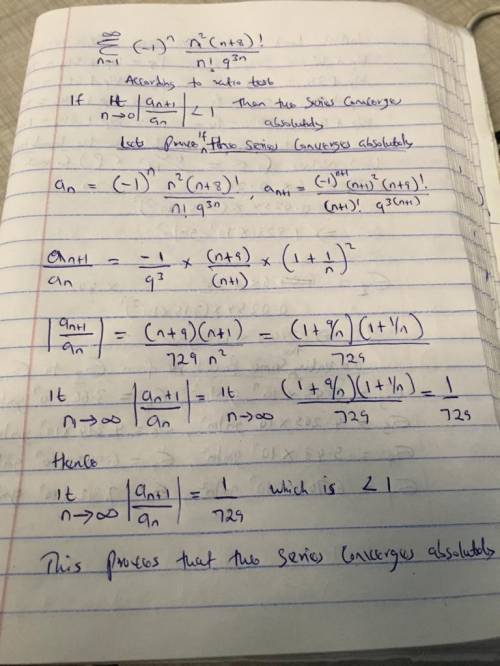 ∞ Σ n=1 (-1)^n n²(n+8)! / n! 9^{3n}
According to ratio test
If lt n→0 |a_{n+1}/a_n| < 1 then the series converge
absolutely
Lets prove if the series converges absolutely
a_n = (-1)^n n²(n+8)! / n! 9^{3n}, a_{n+1} = (-1)^{n+1} (n+1)² (n+9)! / (n+1)! 9^{3(n+1)}
a_{n+1}/a_n = -1/9³ × (n+9)/(n+1) × (1 + 1/n)²
|a_{n+1}/a_n| = (n+9)(n+1) / 729 n² = (1 + 9/n)(1 + 1/n) / 729
lt n→∞ |a_{n+1}/a_n| = lt n→∞ (1 + 9/n)(1 + 1/n) / 729 = 1/729
Hence
lt n→∞ |a_{n+1}/a_n| = 1/729 which is < 1
This proves that the series converges absolutely